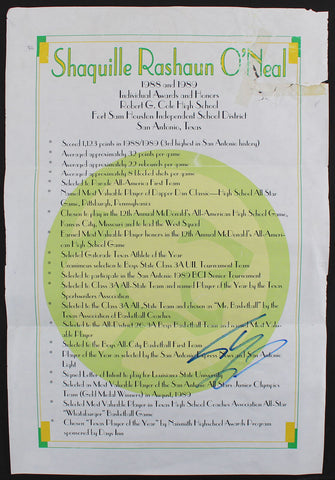 Shaquille Rashaun O'Neal
1988 and 1989
Individual Awards and Honors
Robert G. Cole High School
Fort Sam Houston Independent School District
San Antonio, Texas
Scored 1,123 points in 1988/1989 (3rd highest in San Antonio history)
Averaged approximately 32 points per game
Averaged approximately 22 rebounds per game
Averaged approximately 8 blocked shots per game
Selected to Parade All-America First Team
Named Most Valuable Player of Dapper Dan Classic—High School All-Star
Game, Pittsburg, Pennsylvania
Chosen to play in the 12th Annual McDonald's All-American High School Game,
Kansas City, Missouri and to lead the West Squad
Earned Most Valuable Player honors in the 12th Annual McDonald's All-Ameri-
can High School Game
Selected Gatorade Texas Athlete of the Year
Unanimous selection to Boys State Class 3A UIL Tournament Team
Selected to participate in the San Antonio 1989 BCI Senior Tournament
Selected to Class 3A All-State Team and named Player of the Year by the Texas
Sportswriters Association
Selected to the Class 3A All-State Team and chosen as "Mr. Basketball" by the
Texas Association of Basketball Coaches
Selected to the All-District Boys Basketball Team and named Most Valu-
able Player
Selected to the Boys All-City Basketball First Team
Player of the Year as selected by the San Antonio Express News and San Antonio
Light
Signed Letter of Intent to play for Louisiana State University
Selected as Most Valuable Player of the San Antonio All-Stars Junior Olympics
Team (Gold Medal Winners) in August, 1989
Selected Most Valuable Player in Texas High School Coaches Association All-Star
"Whataburger" Basketball Game
Chosen "Texas Player of the Year" by Naismith Highschool Awards Program
sponsored by Days Inn